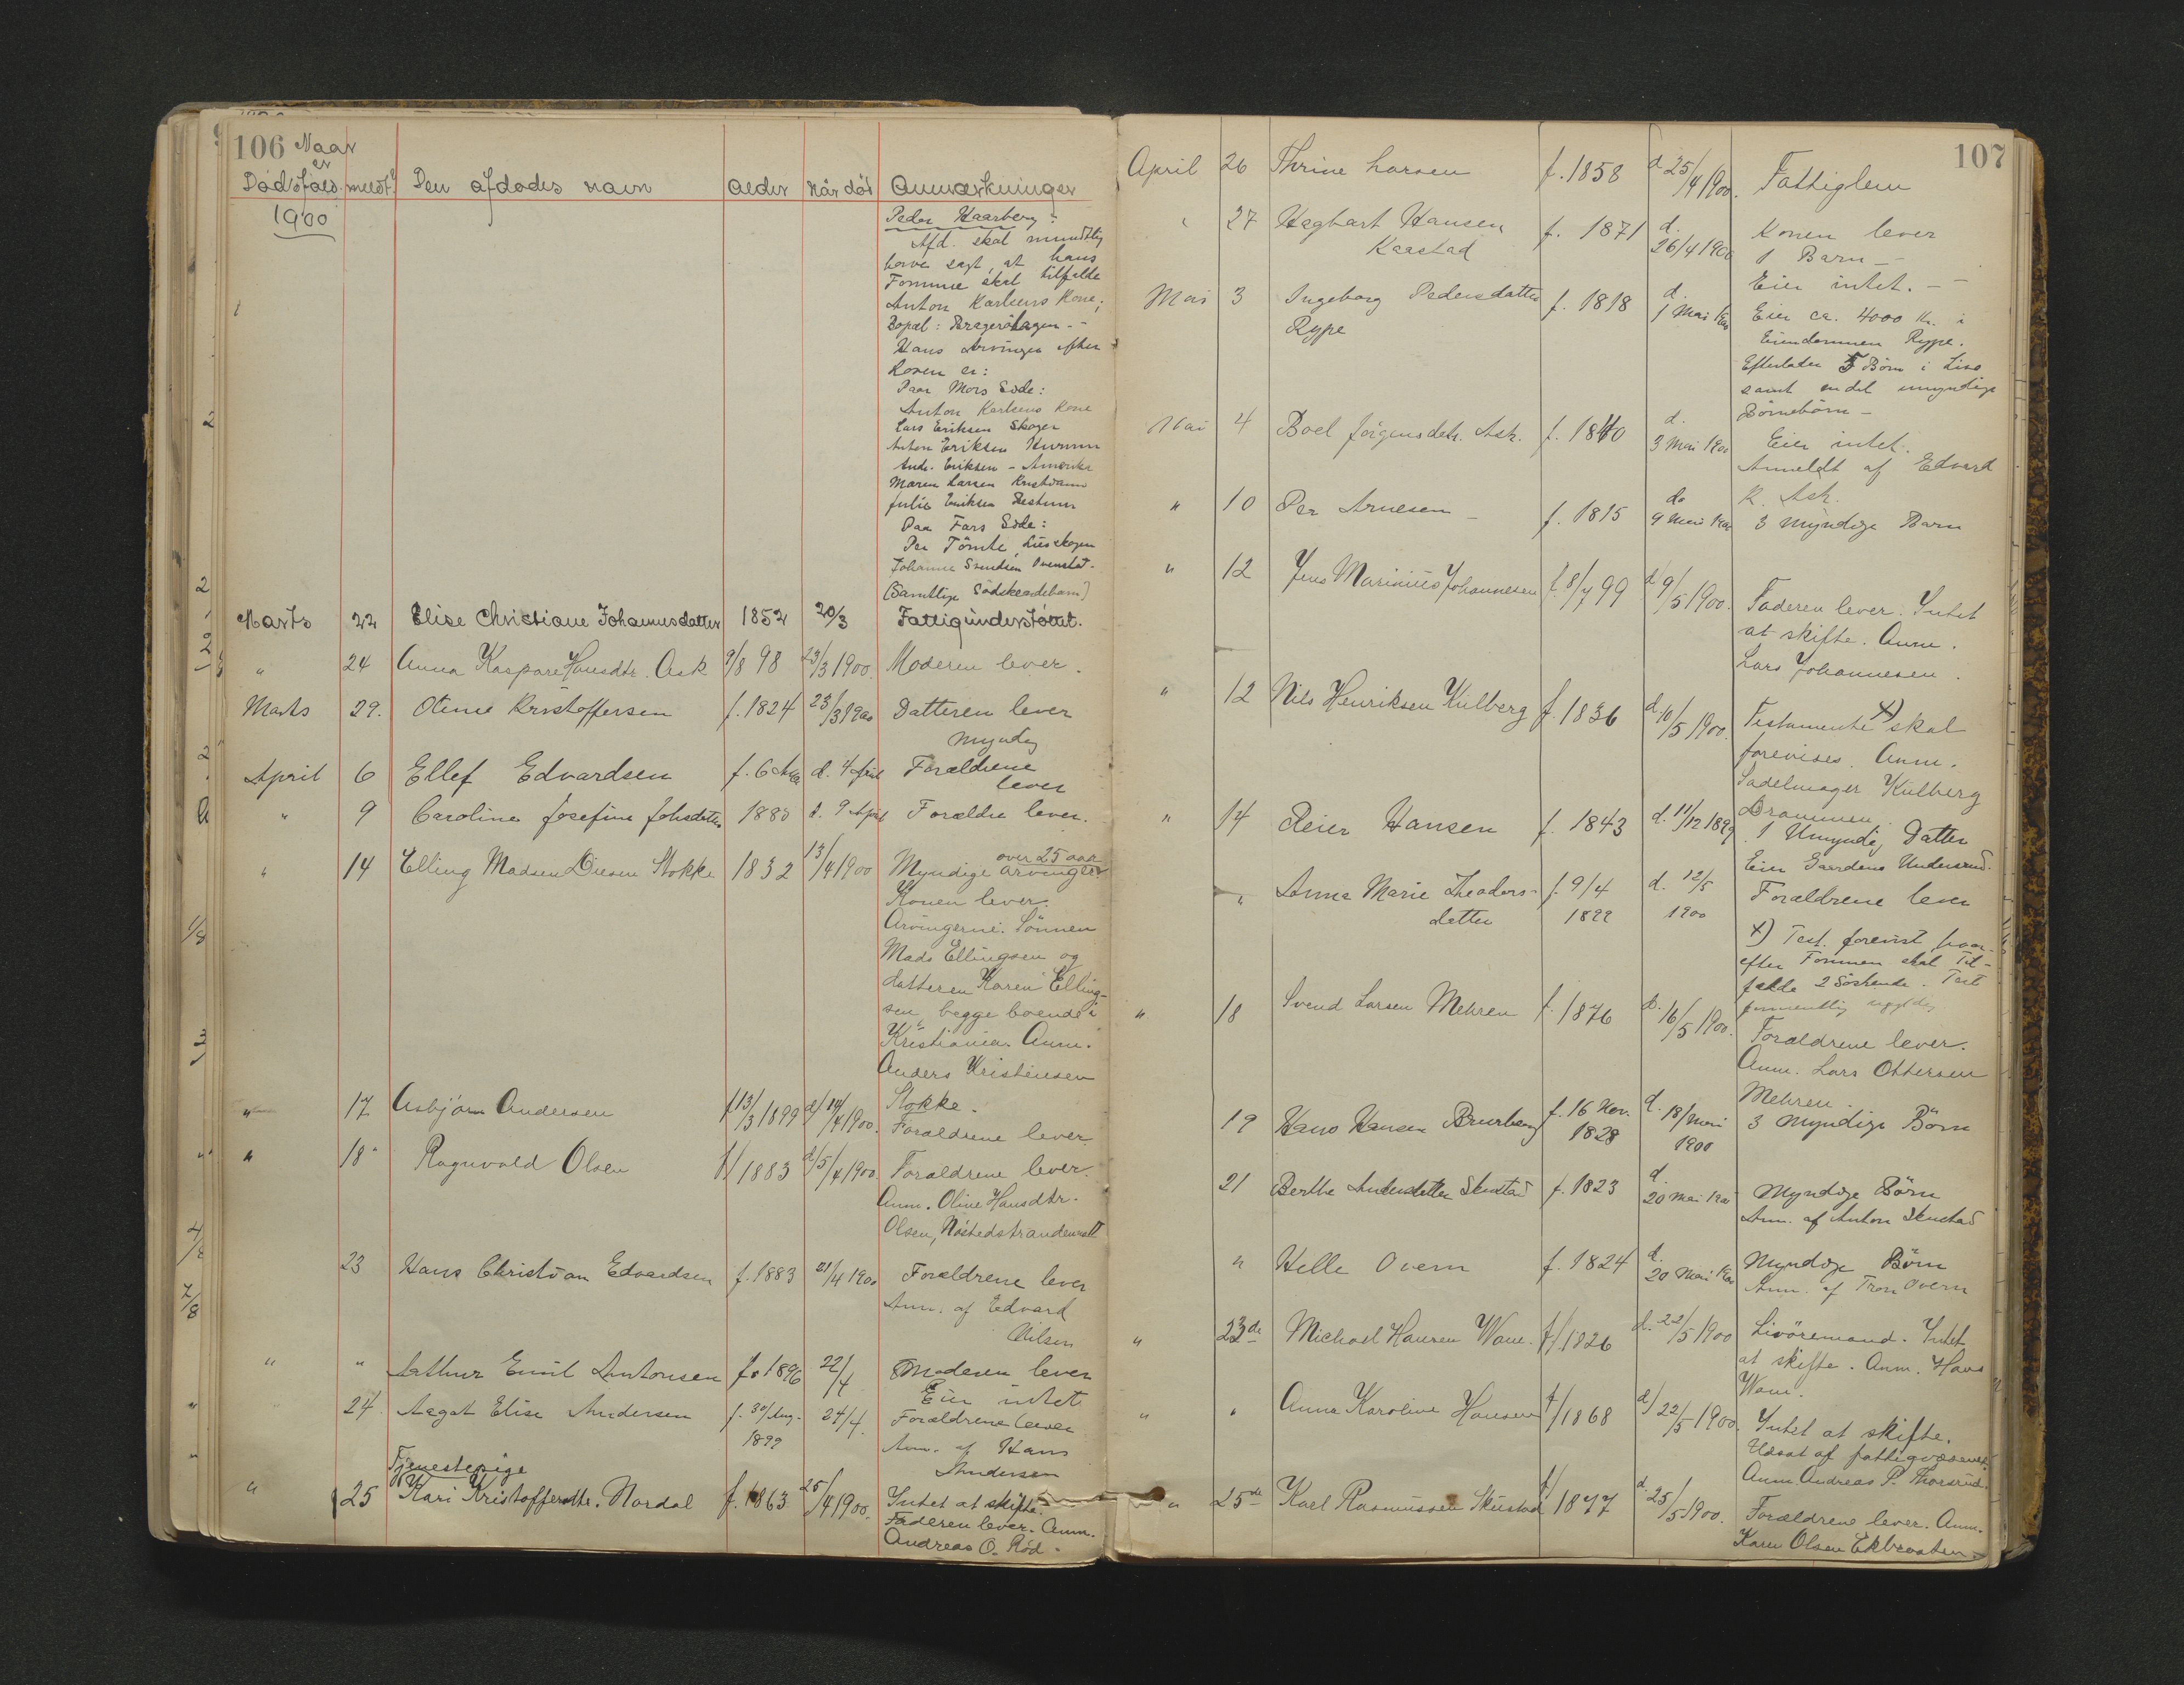 106 Naar
er
Dødsfald meldt? Den afdødes navn Alder Når død Anmærkninger
1900
Peder Haarberg:
Afd. skal mundtlig
have sagt, at hans
Formue skal tilfalde
Anton Karlsens Kone,
Bopæl: Bragerøhagen.-
Hans Arvinger efter
Konen er:
Paa Mors Side:
Anton Karlsens Kone
Lars Eriksen Skogen
Anton Eriksen Hurum
Andr. Eriksen - Amerika
Maren Larsen Kristiania
Julie Eriksen
Paa Fars Side:
Per Tömte, Lieskogen
Johanne Svendsen
(Samtlige Södskendebarn)
Marts 22 Elise Christiane Johannesdatter 1852 20/3 Fattigunderstøttet.
" 24 Anna Kaspare Hansdtr. Ask 9/8 98 23/3 1900. Moderen lever.
Marts 29. Otine Kristoffersen f. 1824 23/3 1900 Datteren lever
myndig
April 6 Ellef Edvardsen f. 6 d. 4 April Forældrene
lever
" 9 Caroline Josefine Johsdatter 1880 d. 9 April Forældre lever.
" 14 Elling Madsen Diesen Stokke 1832 13/4 1900 Myndige arvinger over 25 aar
Konen lever.
Arvingerne: Sönnen
Mads Ellingsen og
datteren Karen Elling-
sen, begge boende i
Kristiania. Anm.
Anders Kristensen
Stokke.
" 17 Asbjörn Andersen f 13/3 1899 d/ 14/4 1900. Forældrene lever.
" 18 Ragnvald Olsen f/ 1883 d/ 15/4 1900. Forældrene lever.
Anm. Oline Hansdtr.
Olsen, Nøstedstranden
23 Hans Christian Edvardsen f. 1883 21/4 1900 Forældrene lever
Anm. af Edvard
Nilsen
" " Arthur Emil Antonsen f. 1896 22/4 Moderen lever
Eier intet
24. Aagot Elise Andersen f. 30/Aug. 1899 24/4. Forældrene lever
Anm. af Hans
Andersen
Tjenestepige
" 25 Kari Kristoffersdtr. Nordal f. 1863 25/4 1900. Intet at skifte.
Faderen lever. Anm.
Andreas O. Rød.
107
April 26 Thrine Larsen f. 1858 d. 25/4 1900. Fattiglem
" 27 Hagbart Hansen f. 1871 d. 26/4 1900 Konen lever
Kaastad 1 Barn -
Eier intet. -
Mai 3 Ingeborg Pedersdatter f. 1818 d. 1 Mai 1900 Eier ca. 4000 Kr. i
Rype Eiendommen Rype.
Efterlader 5 Börn i Live
samt endel umyndige
Börnebörn -
Mai 4 Boel Jörgensdatr. Ask. f. 1840 d. 3 Mai 1900 Eier intet.
Anmeldt af Edvard
R. Ask.
" 10 Per Arnesen - f. 1815 d. 9 Mai 1900 3 myndige Barn
" 12 Jens Marinius Johannesen f. 8/7 99 d 9/5 1900. Faderen lever. Intet
at skifte. Anm.
Lars Johannesen.
" 12 Nils Henriksen Kulberg f. 1836 d. 10/5 1900. Testamente x) skal
forevises. Anm.
Sadelmager Kulberg
Drammen.
" 14 Reier Hansen f. 1843 d. 11/12 1899 1 Umyndig Datter
Eier Gaardene
" Anna Marie Theodors- f. 9/4 d. 12/5 Forældrene lever
datter 1899 1900
x) Test. forevist, hvor-
efter Formuen skal Til-
falde 2 Söskende. Test
" 18 Svend Larsen Mehren f. 1876 d. 16/5 1900. Forældrene lever.
Anm. Lars Ottersen
Mehren.
19 Hans Hansen Brurberg f. 16 Nov. 1828 d. 18/Mai 1900 3 Myndige Börn
21 Berthe Andersdatter Skustad f. 1823 d. 20 Mai 1900 Myndige Börn
Anm. af Anton Skustad
" Helle Overn f. 1824 d. 20 Mai 1900 Myndige Börn
Anm. af Tron Overn
" 23de Michael Hansen Wam. f/ 1826 d. 22/5 1900 Livöremand. Intet
at skifte. Anm. Hans
Wam.
" " Anna Karoline Hansen f/ 1868 d/ 22/5 1900. Intet at skifte.
Udsat af fattigvæsenet.
Anm Andreas P. Thorsrud.
" 25de Karl Rasmussen Skustad f/ 1877 d. 25/5 1900. Forældrene lever. Anm.
Karen Olsen Ekbraaten